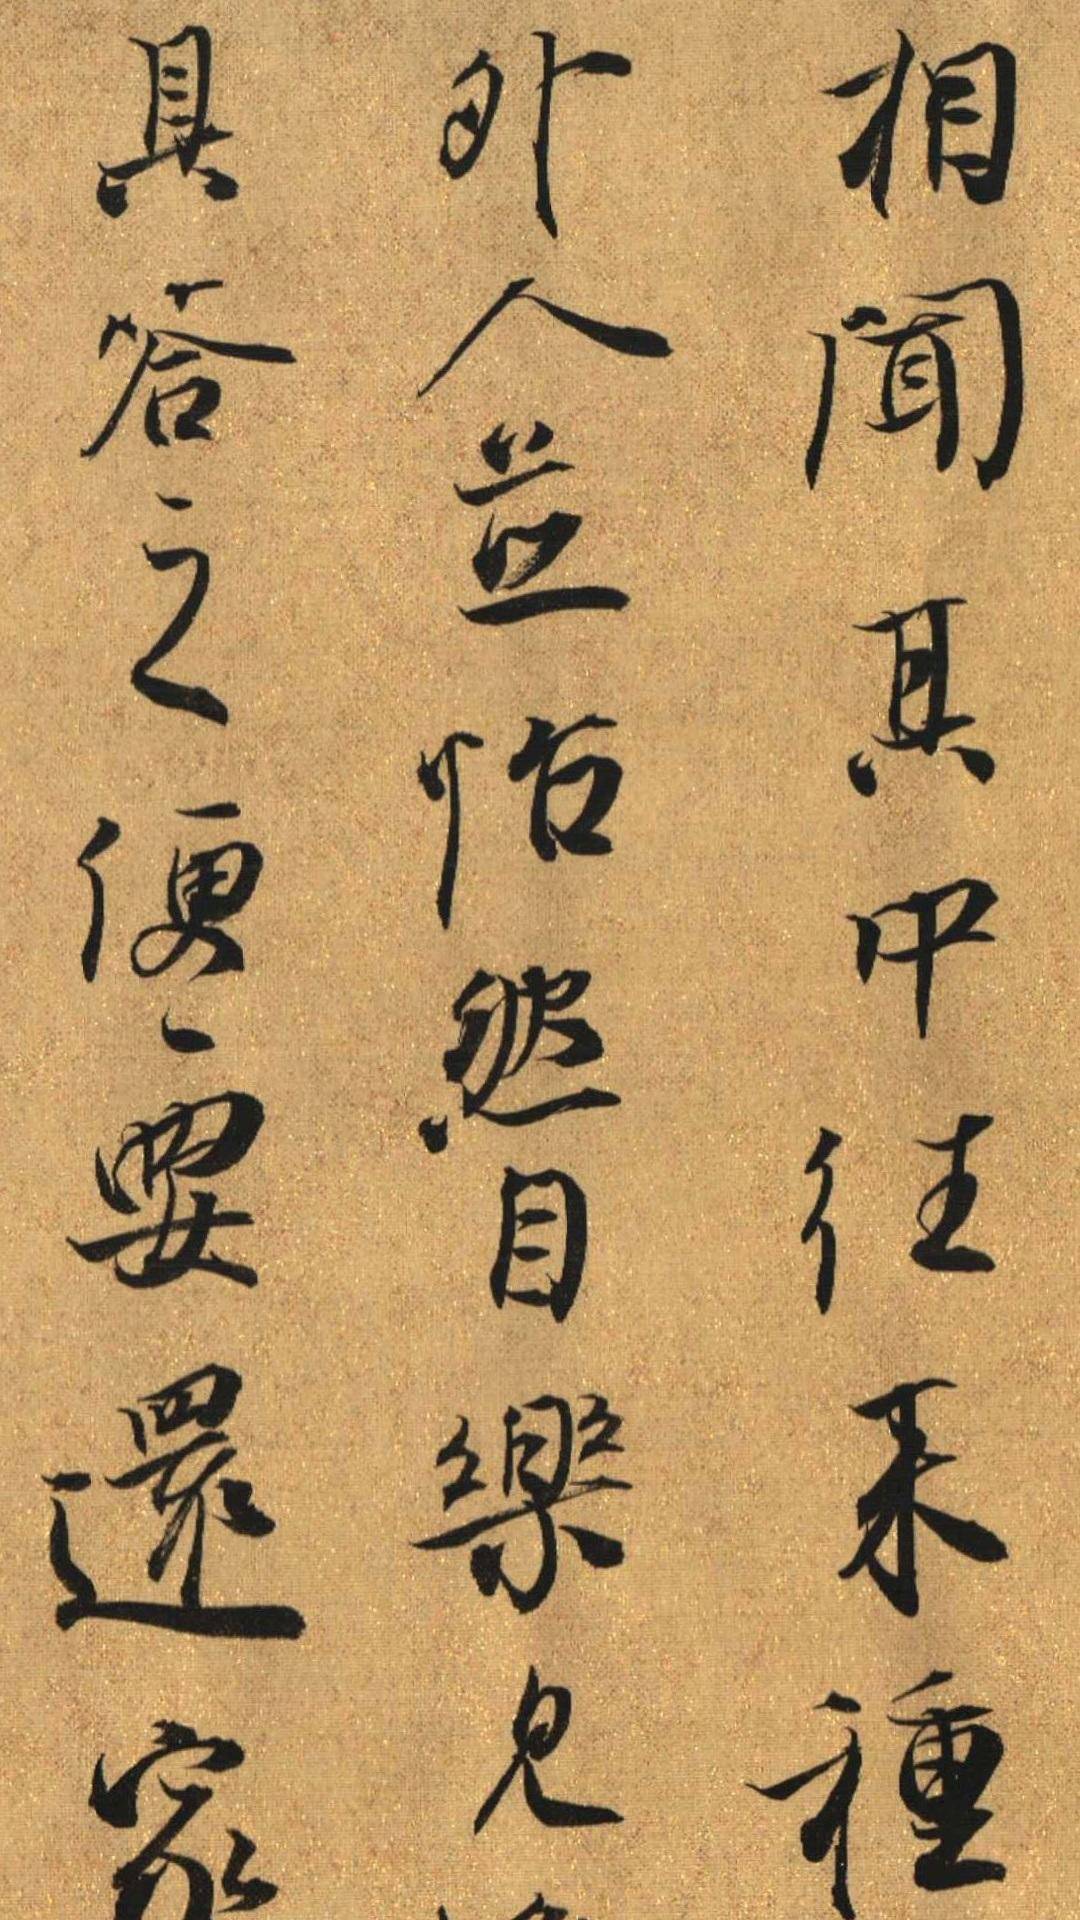 相聞其中往来種
外人並怡然自樂見
具答之便要還家